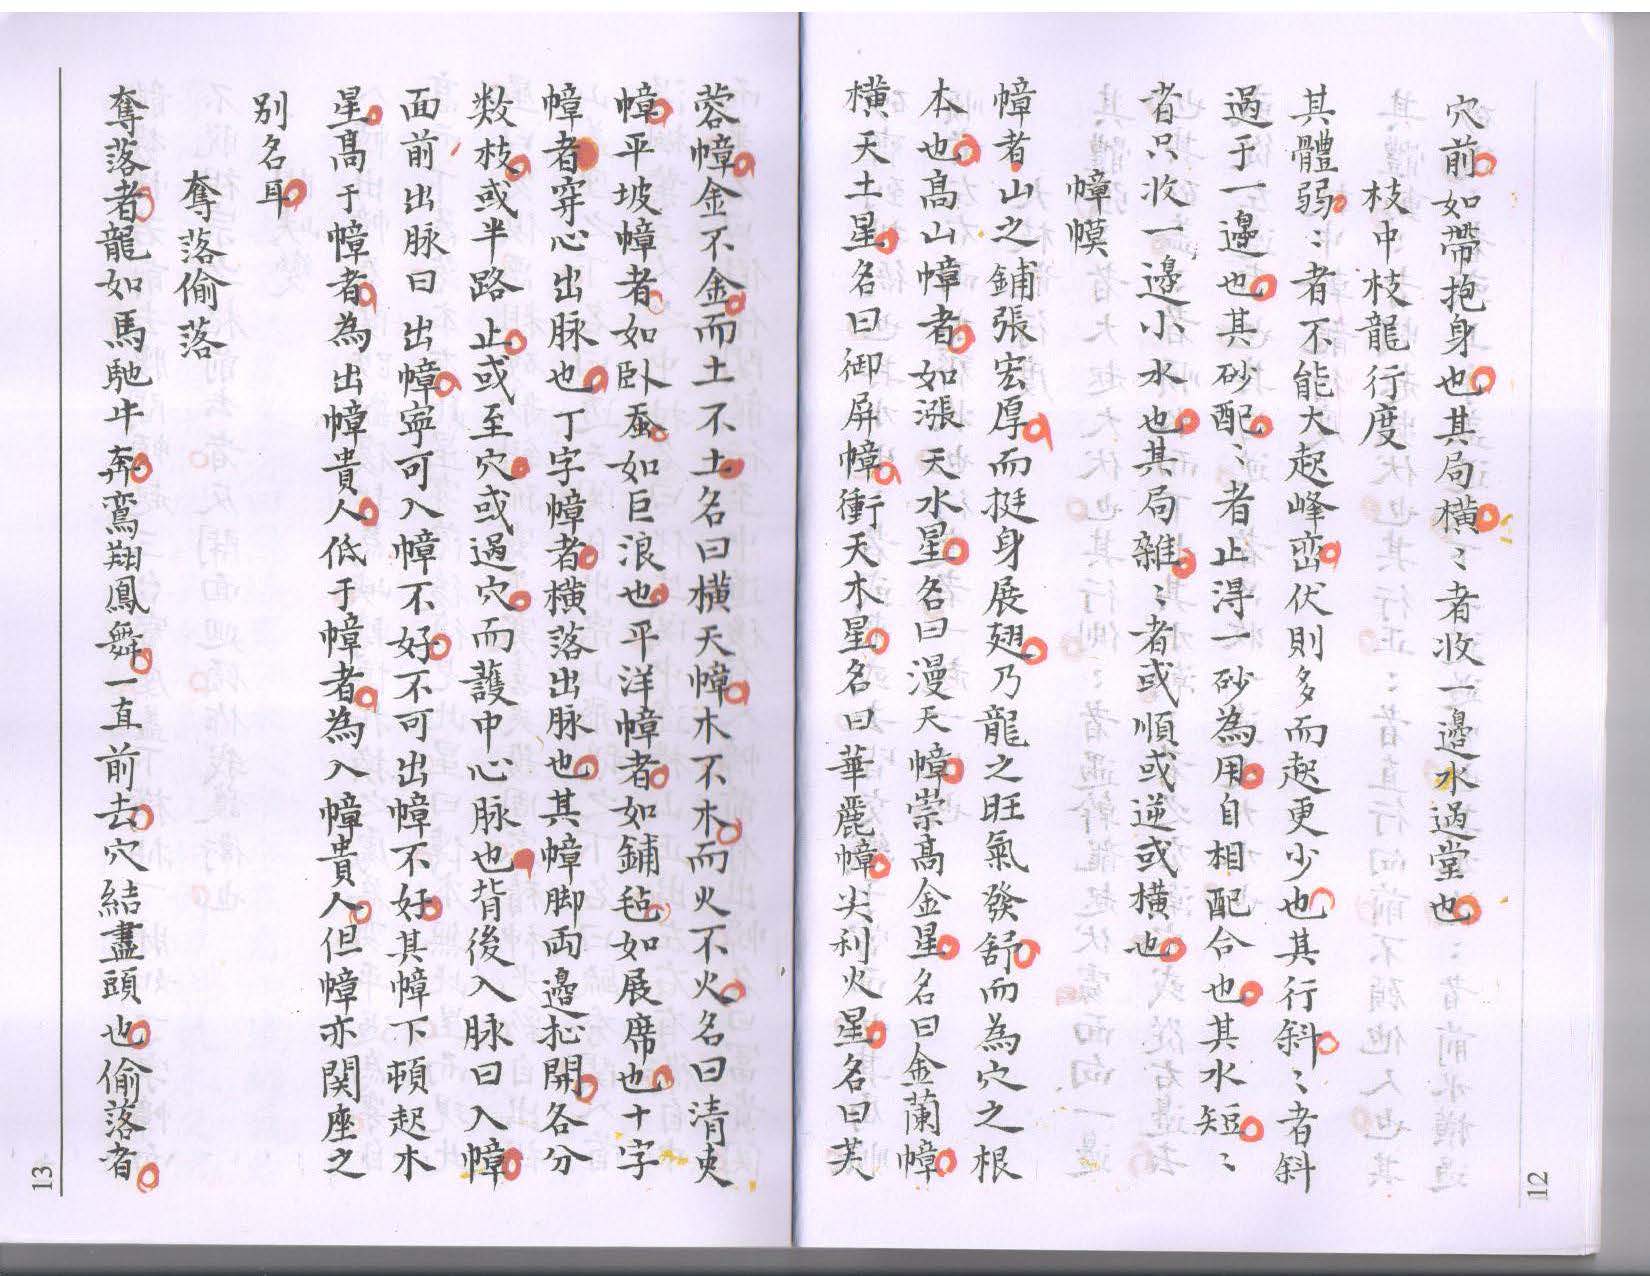 穴前如帶抱身也其局橫〻者收一邊水過堂也
枝中枝龍行度
其體弱〻者不能大起峰巒伏則多而起更少也其行斜〻者斜
過于一邊也其砂配〻者止得一砂為用自相配合也其水短〻
者只收一邊小水也其局雜〻者或順或逆或橫也
幛幙
幛者山之鋪張宏厚而挺身展翅乃龍之旺氣發舒而為穴之根
本也高山幛者如漲天水星名曰漫天幛崇高金星名曰金蘭幛
橫天土星名曰御屏幛衝天木星名曰華麗幛尖利火星名曰芙
蓉幛金不金而土不土名曰橫天幛木不木而火不火名曰清吏
幛平坡幛者如臥蚕如巨浪也平洋幛者如鋪毡如展席也十字
幛者穿心出脉也丁字幛者橫落出脉也其幛脚両邊抛開各分
数枝或半路止或至穴或過穴而護中心脉也背後入脉曰入幛
面前出脉曰出幛寧可入幛不好不可出幛不好其幛下頓起木
星高于幛者為出幛貴人低于幛者為入幛貴人但幛亦関座之
别名耳
奪落偷落
奪落者龍如馬馳牛奔鸞翔鳳舞一直前去穴結盡頭也偷落者
12
13